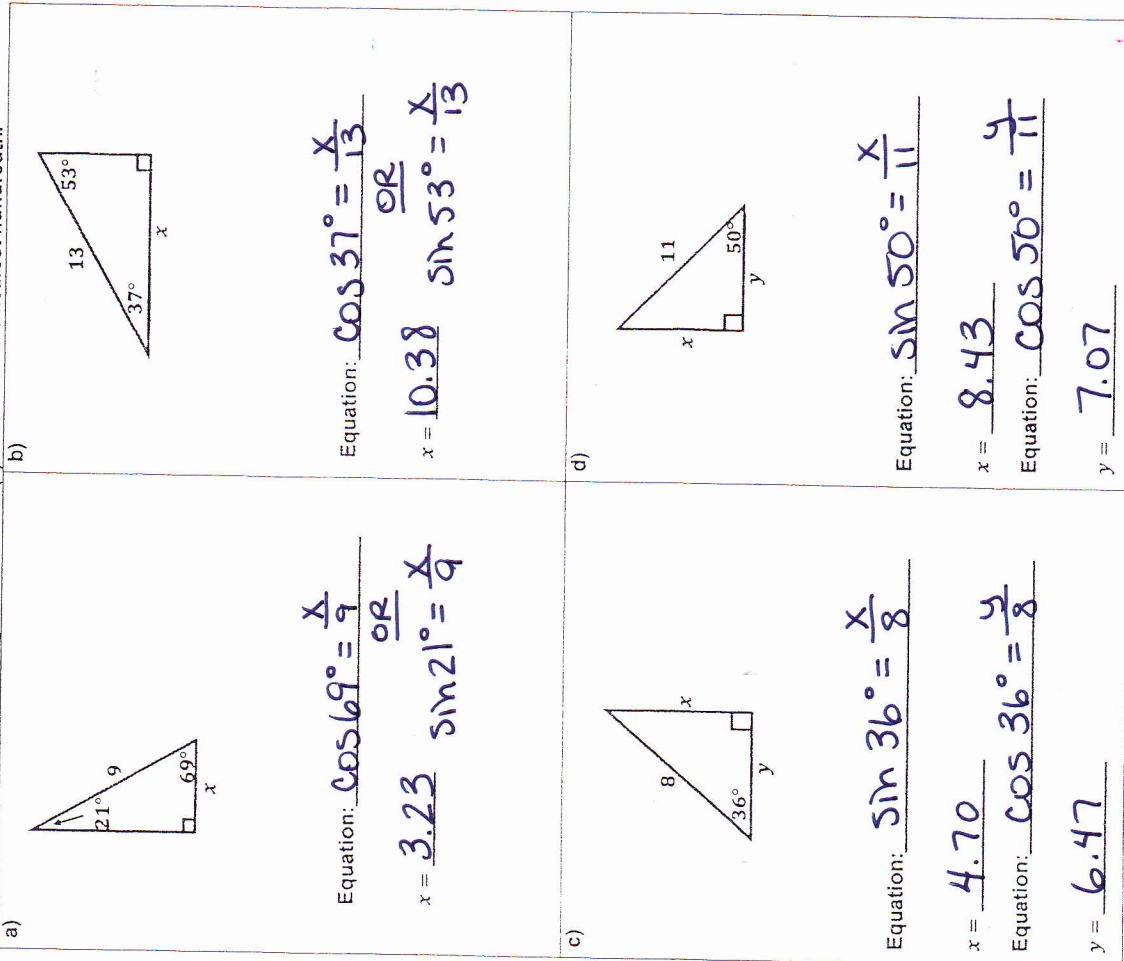 a)
21°
9
69°
x
Equation: cos 69° = x/9
OR
x = 3.23 sin 21° = x/9
b)
53°
13
37°
x
Equation: cos 37° = x/13
OR
x = 10.38 sin 53° = x/13
c)
8
x
36°
y
Equation: sin 36° = x/8
x = 4.70
Equation: cos 36° = y/8
y = 6.47
d)
11
x
50°
y
Equation: sin 50° = x/11
x = 8.43
Equation: cos 50° = y/11
y = 7.07